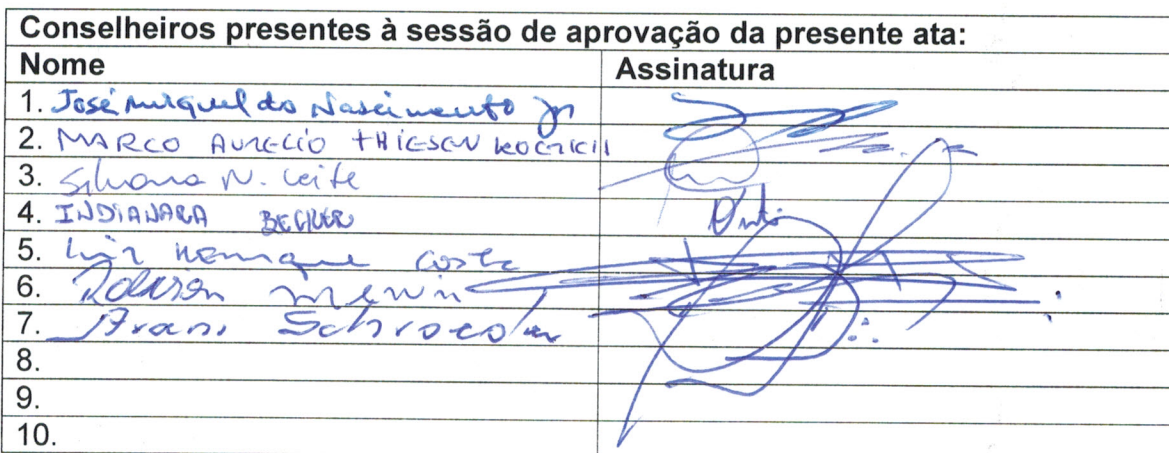 Conselheiros presentes à sessão de aprovação da presente ata:
Nome Assinatura
1. José Miguel do Nascimento Jr
2. MARCO AURELIO THIESEN KOERICH
3. Silvana N. Leite
4. INDIANARA BECKER
5. Luiz Henrique Costa
6.
7. Schroeder
8.
9.
10.